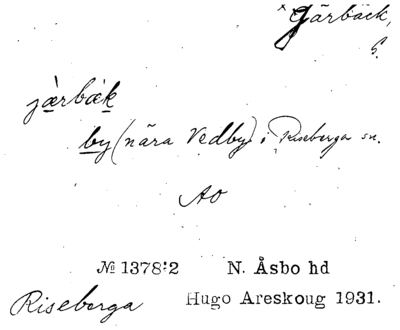 × Gärbäck,
S.
jæ̀rbæk
by (nära Vedby) i Riseberga sn.
AO
№ 1378:2 N. Åsbo hd
Riseberga Hugo Areskoug 1931.